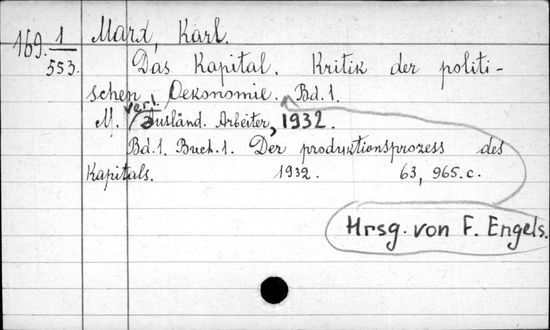 169. 1/553.
Marx, Karl.
Das Kapital. Kritik der politi-
schen Oekonomie. Bd. 1.
M. Verl. Ausländ. Arbeiter, 1932.
Bd. 1. Buch. 1. Der produktionsprozess des
Kapitals. 1932. 63, 965.c.
Hrsg. von F. Engels.